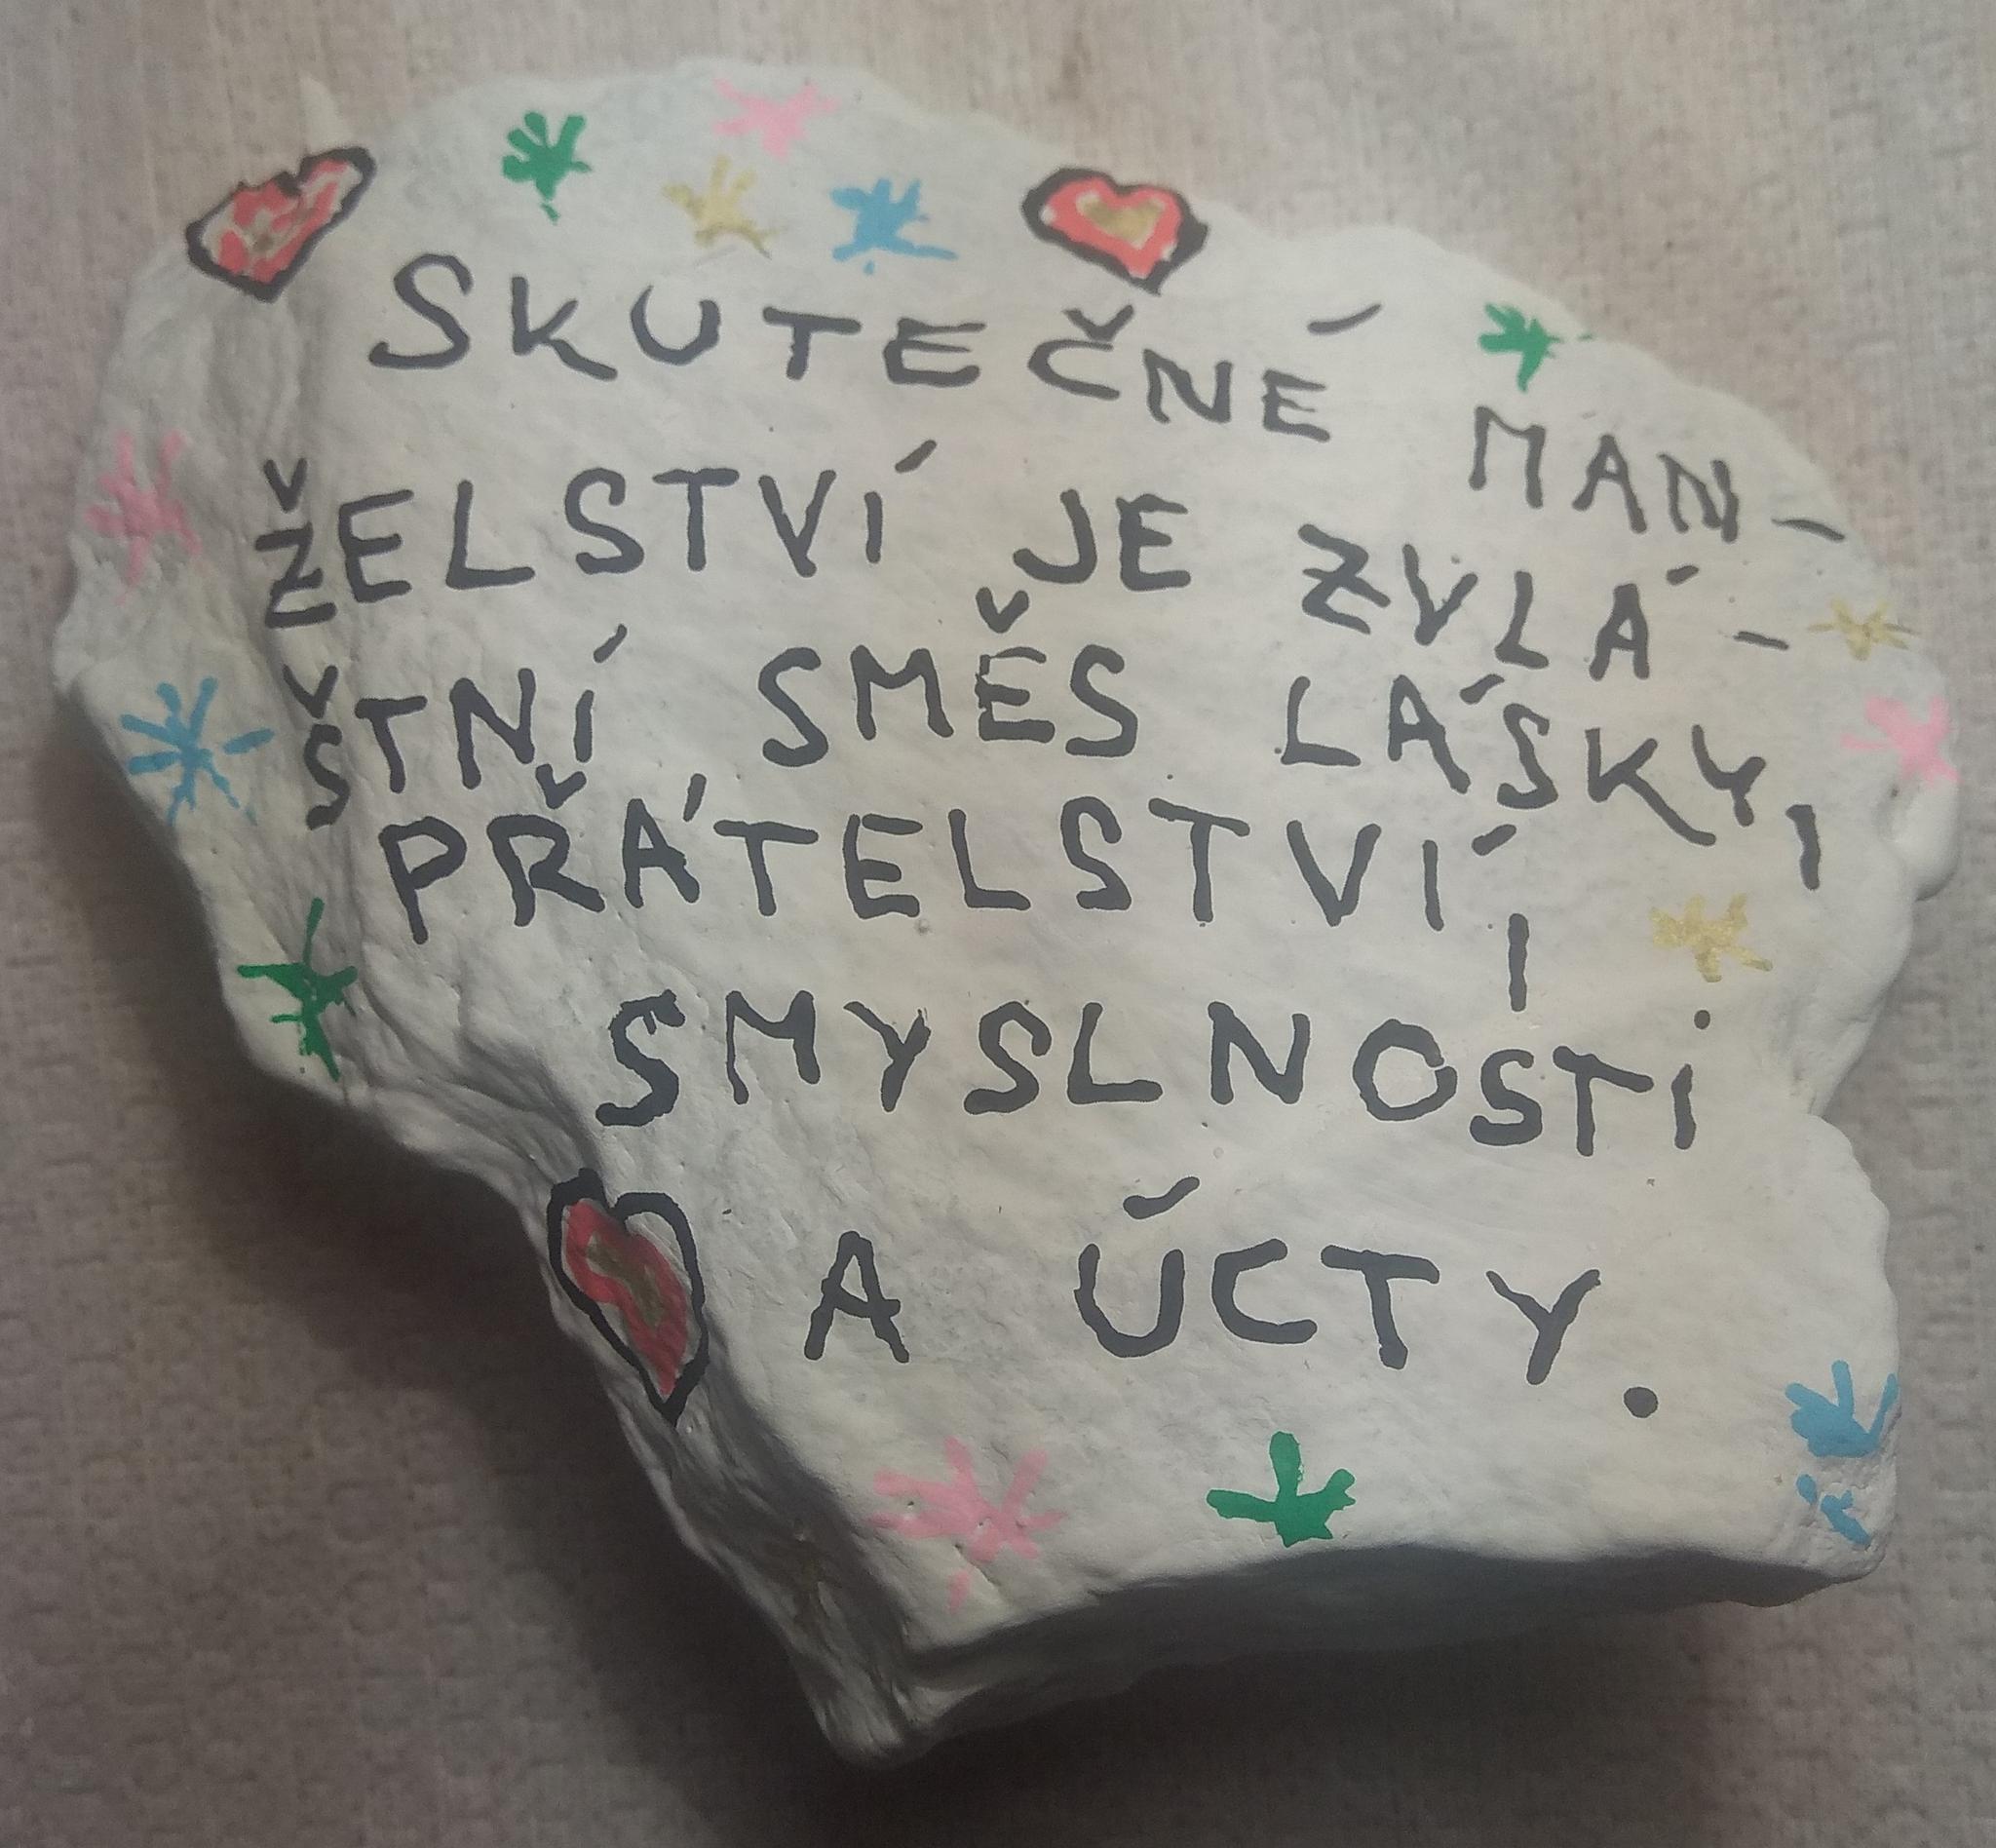 SKUTEČNÉ MAN-
ŽELSTVÍ JE ZVLÁ-
ŠTNÍ SMĚS LÁSKY,
PŘÁTELSTVÍ,
SMYSLNOSTI
A ÚCTY.